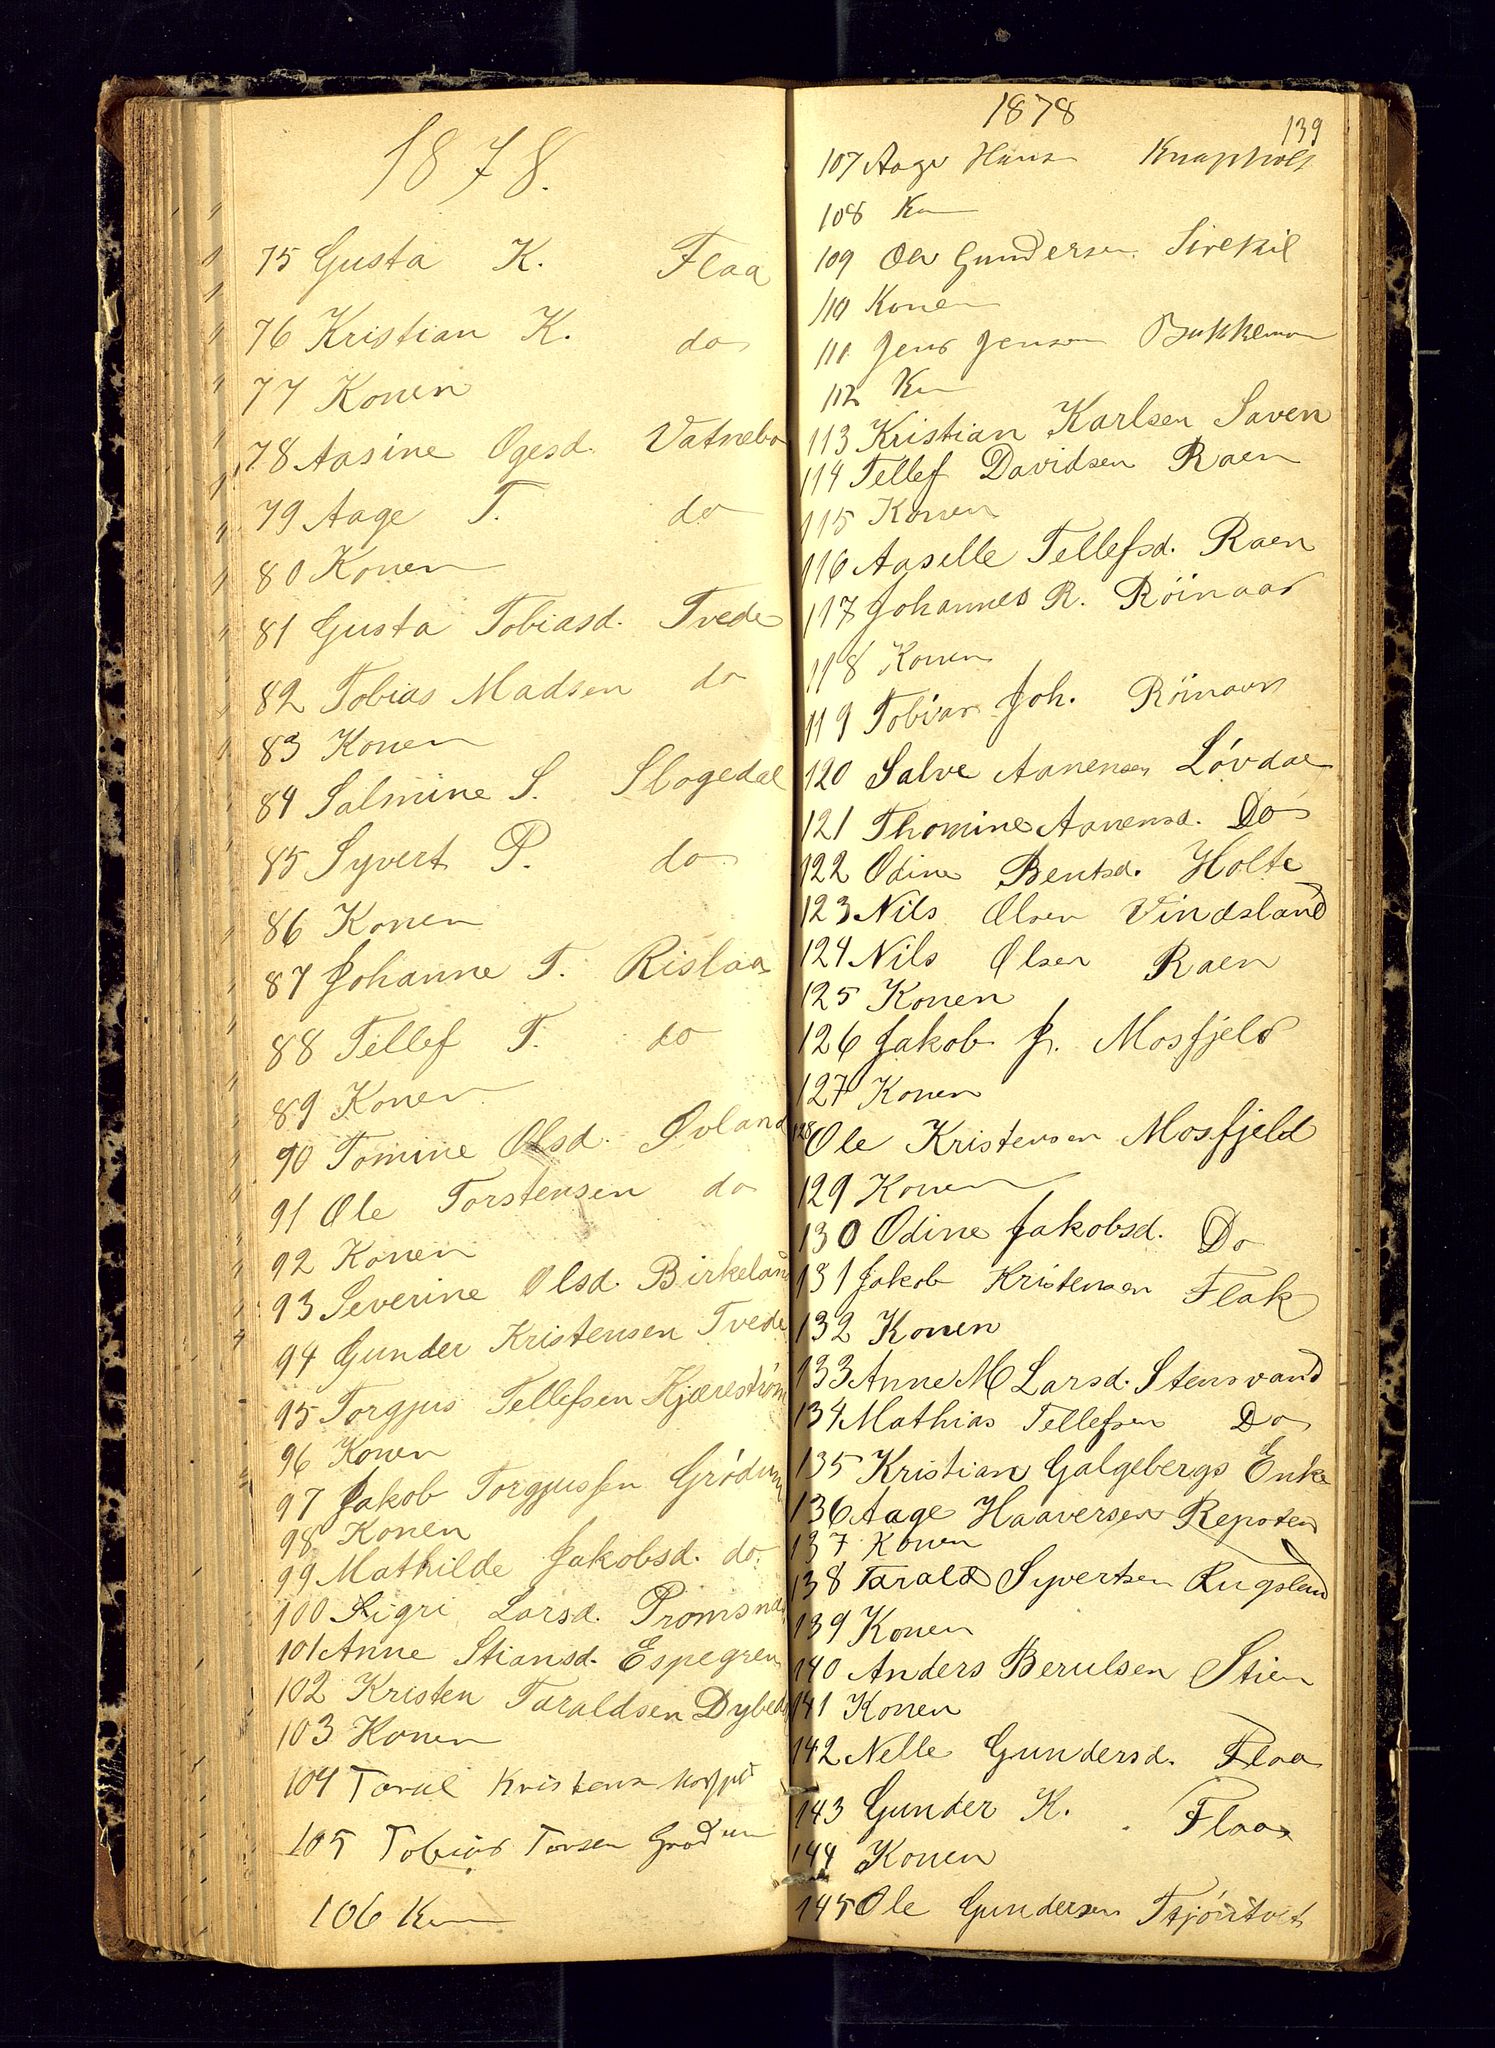 1878.
75 Gusta K. Flaa
76 Kristian K. do
77 Konen
78 Aasine Ogesd. Vatnebo
79 Aage T. do
80 Konen
81 Gusta Tobiasd. Tvede
82 Tobias Madsen do
83 Konen
84 Salmine S. Slogedal
85 Syvert P. do
86 Konen
87 Johanne T. Rislaa
88 Tellef T. do
89 Konen
90 Tomine Olsd. Øvland
91 Ole Torstensen do
92 Konen
93 Severine Olsd. Birkeland
94 Gunder Kristensen Tvede
95 Torgjus Tellefsen Kjærestrøm
96 Konen
97 Jakob Torgjussen Grødum
98 Konen
99 Mathilde Jakobsd. do.
100 Sigri Larsd. Promsnes
101 Anne Stiansd. Espegren
102 Kristen Taraldsen Dybed
103 Konen
104 Taral Kristens
105 Tobias Torsen Grødum
106 Kn
1878
139
107 Aage Hans Knapholt
108 Kn
109 Ole Gundersen Sirekil
110 Konen
111 Jens Jensen Bukkemon
112 Kn
113 Kristian Karlsen Saven
114 Tellef Davidsen Raen
115 Konen
116 Aaselle Tellefsd. Raen
117 Johannes R. Röinaas
118 Konen
119 Tobias Joh. Röinaas
120 Salve Aanensen Lóvdal
121 Thomine Aanensd. Do
122 Odine Bentsd. Holte
123 Nils Olsen Vindsland
124 Nils Olsen Raen
125 Konen
126 Jakob J. Mosfjeld
127 Konen
128 Ole Kristensen Mosfjeld
129 Konen
130 Odine Jakobsd. Do
131 Jakob Kristensen Flak
132 Konen
133 Anne M Larsd. Stensvand
134 Mathias Tellefsen Do
135 Kristian Galgebergs Enke
136 Aage Haaversen Repsten
137 Konen
138 Tarald Syvertsen Rugsland
139 Konen
140 Anders Berulsen Stien
141 Konen
142 Nelle Gundersd. Flaa
143 Gunder K. Flaa
144 Konen
145 Ole Gundersen Tsjöntvet